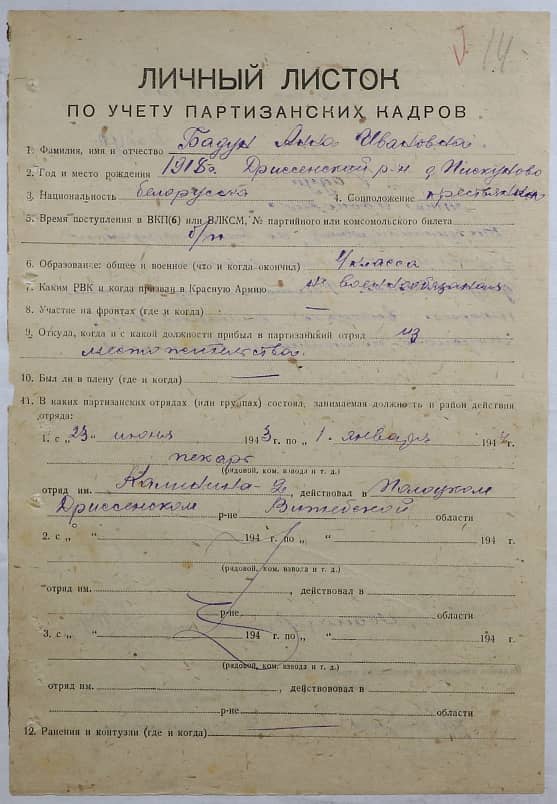 14
ЛИЧНЫЙ ЛИСТОК
ПО УЧЕТУ ПАРТИЗАНСКИХ КАДРОВ
1. Фамилия, имя и отчество Бадун Анна Ивановна
2. Год и место рождения 1918 г. Дриссенский р-н д. Пискуново
3. Национальность белорусска 4. Соцположение крестьянка
5. Время поступления в ВКП(б) или ВЛКСМ, № партийного или комсомольского билета
б/п
6. Образование: общее и военное (что и когда окончил) 4 класса
7. Каким РВК и когда призван в Красную Армию не военнообязаная
8. Участие на фронтах (где и когда) —
9. Откуда, когда и с какой должности прибыл в партизанский отряд из
места жительства
10. Был ли в плену (где и когда) —
11. В каких партизанских отрядах (или группах) состоял, занимаемая должность и район действия
отряда:
1. с „23“ июня 1943 г. по „1“ января 1944 г.
пекарь
(рядовой, ком. взвода и т. д.)
отряд им. Калинина-2, действовал в Полоцком
Дриссенском р-не Витебской области
2. с „ “ 194 г. по „ “ 194 г.
(рядовой, ком. взвода и т. д.)
отряд им. , действовал в
р-не области
3. с „ “ 194 г. по „ “ 194 г.
(рядовой, ком. взвода и т. д.)
отряд им. , действововал в
р-не области
12. Ранения и контузии (где и когда)